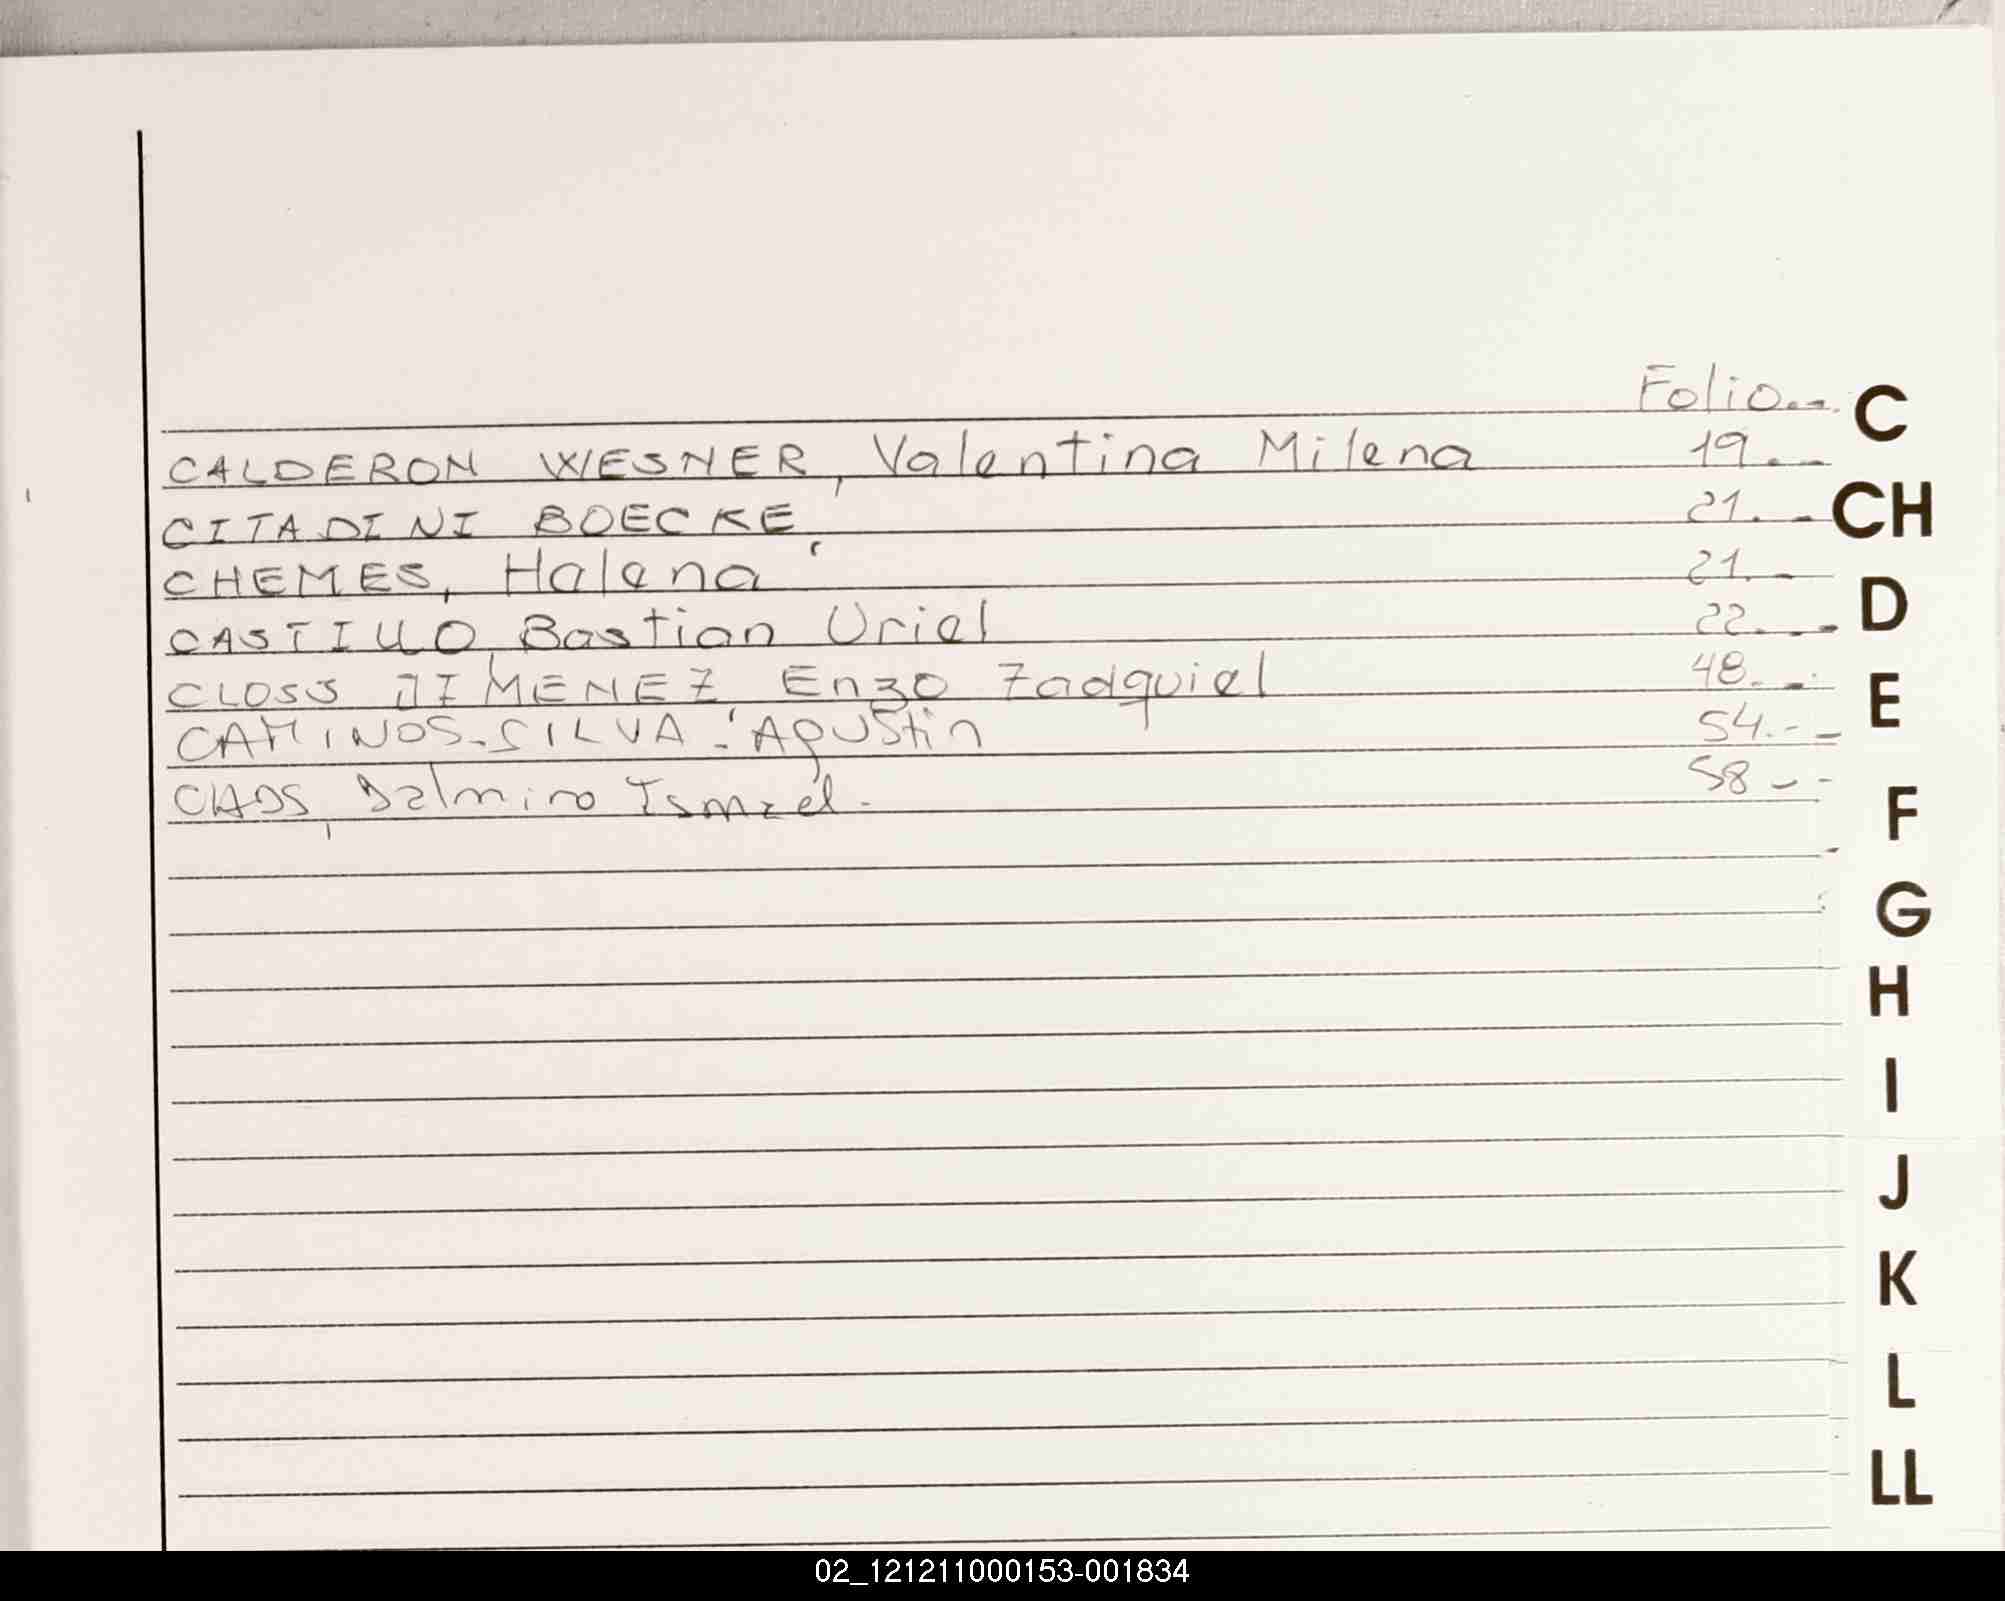 Folio... C
CALDERON WESNER, Valentina Milena 19. --
CITADINI BOECKE, 21. - CH
CHEMES, Halena 21. -
CASTILLO, Bastian Uriel 22. - - D
CLOSS JIMENEZ, Enzo Zadquiel 48. - E
CAMINOS-SILVA-Agustin 54. - -
Dalmiro Ismael- 58 - -
F
G
H
I
J
K
L
LL
02_121211000153-001834